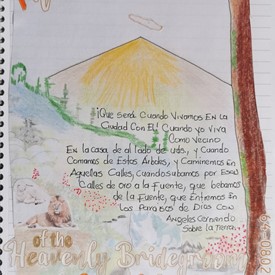 ¡Que será Cuando Vivamos En La
Ciudad Con Él! Cuando yo Viva
Como Vecino
En La casa de al lado de uds., y Cuando
Comamos de Estos Arboles, y Caminemos En
Aquellas Calles, Cuando subamos por Esas
Calles de oro a La Fuente, que bebamos
de la Fuente, que Entremos En
Los Paraisos de Dios Con
Angeles Cerniendo
Sobre La Tierra,
of the
Heavenly Bridegroom